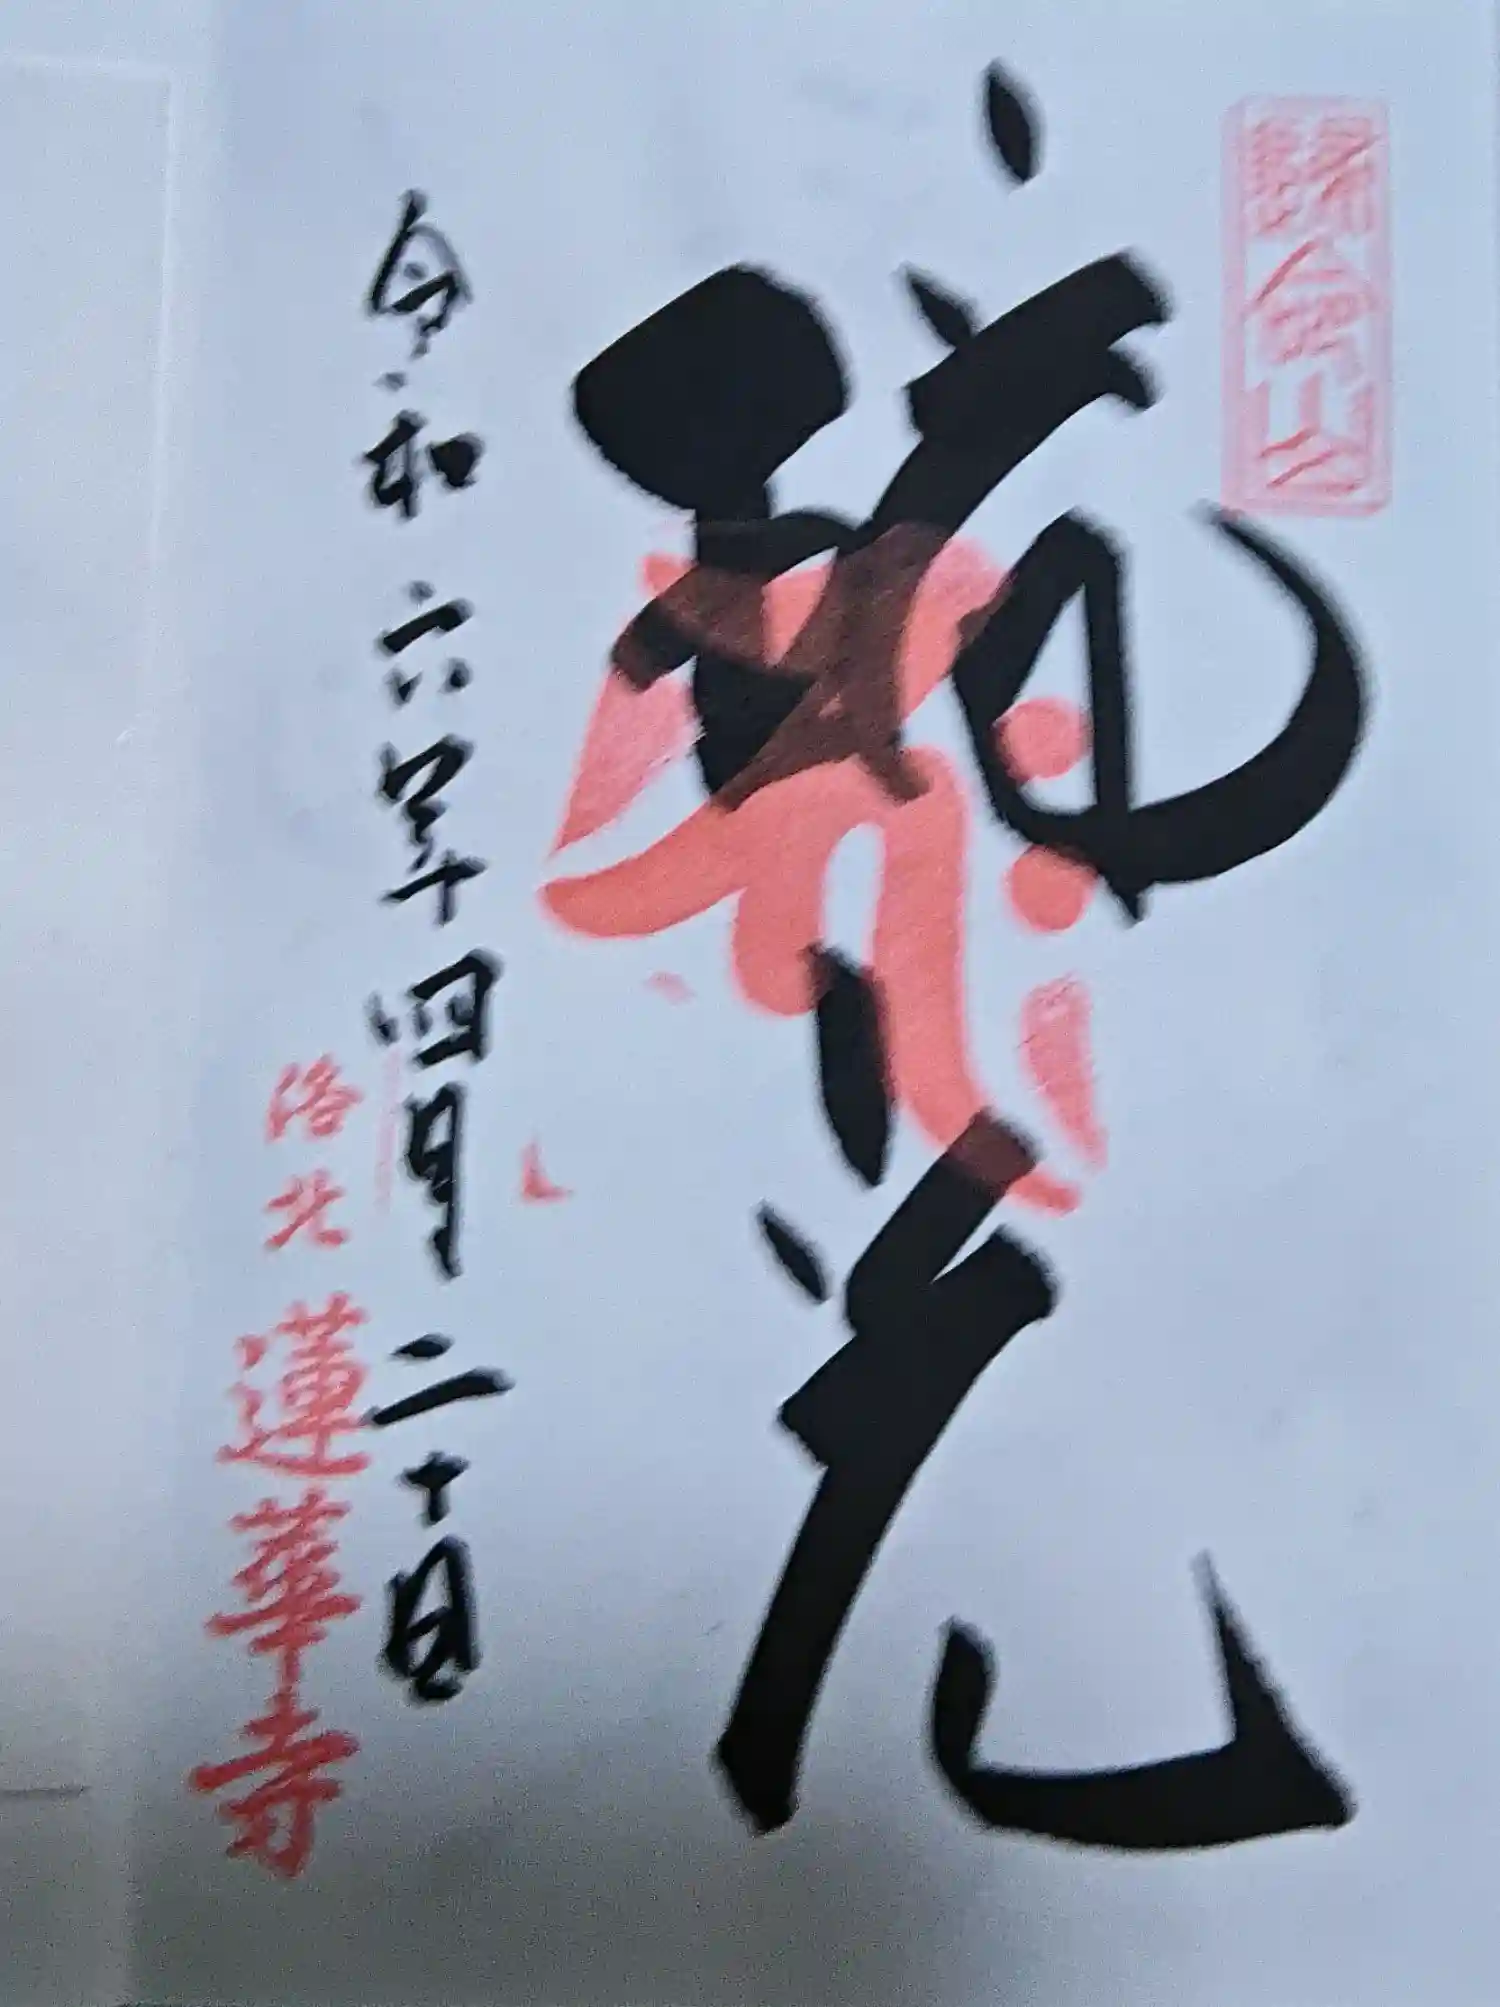 歸命山
光
令和六年四月二十日
洛北 蓮華寺